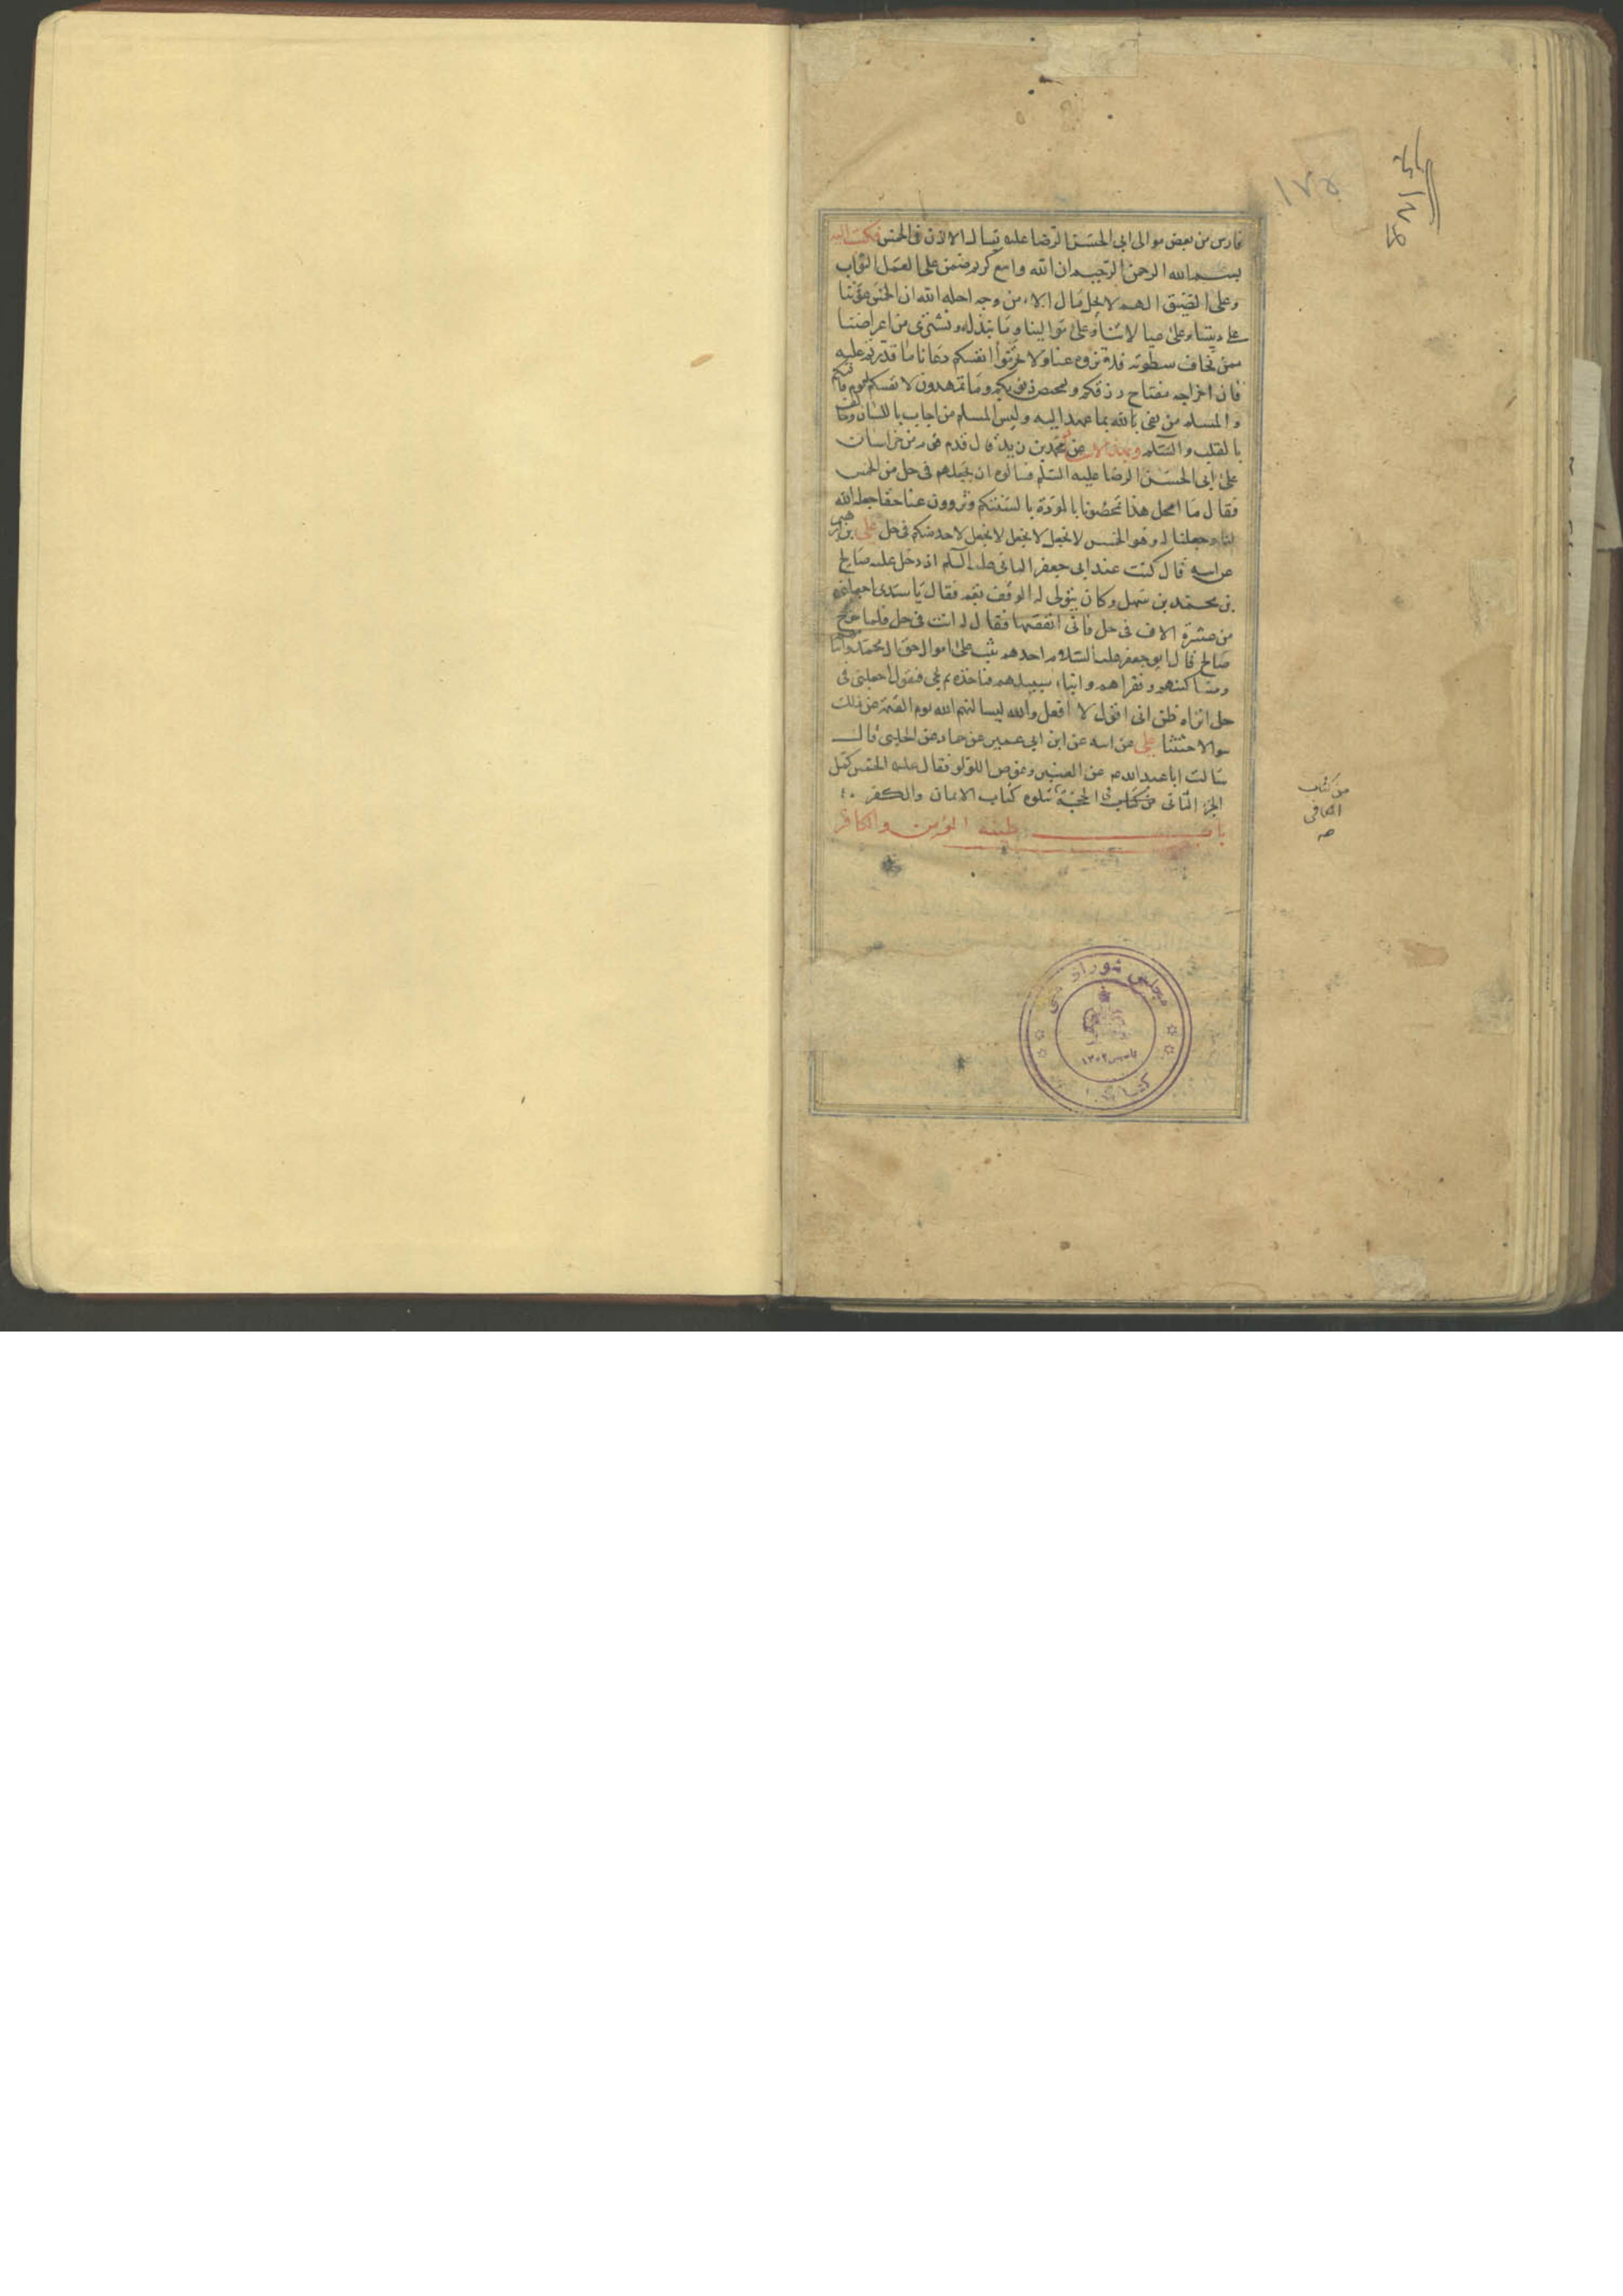 فارس من بعض موالى ابى الحسن الرضا عليه تسأله الاذن فى الخمس فكتب اليه
بسم الله الرحمن الرحيم ان الله واسع كريم ضمن على العمل الثواب
وعلى الضيق الهم لا يحل مال الا من وجه احله الله ان الخمس عوننا
على ديننا وعلى عيالاتنا وعلى موالينا وما نبذله ونشترى من اعراضنا
ممن نخاف سطوته فلا تزووه عنا ولا تحرموا انفسكم دعانا ما قدرتم عليه
فان اخراجه مفتاح رزقكم وتمحيص ذنوبكم وما تمهدون لانفسكم ليوم فاقتكم
والمسلم من يفى بالله بما عهد اليه وليس المسلم من اجاب باللسان وخالف
بالقلب والسلام وبهذا الاسناد عن محمد بن زيد قال قدم قوم من خراسان
على ابى الحسن الرضا عليه السلم فسالوه ان يجعلهم فى حل من الخمس
فقال ما امحل هذا تمحضونا بالمودة بالسنتكم وتزوون عنا حقا جعله الله
لنا وجعلنا له وهو الخمس لا نجعل لا نجعل لا نجعل لاحد منكم فى حل على بن ابرهيم
عن ابيه قال كنت عند ابى جعفر الثانى عليه السلم اذ دخل عليه صالح
بن محمد بن سهل وكان يتولى له الوقف بقم فقال يا سيدى اجعلنى
من عشرة الاف فى حل فانى انفقتها فقال له انت فى حل فلما خرج
صالح قال ابو جعفر عليه السلام احدهم يثب على اموال حق ال محمد وايتامهم
ومساكينهم وفقراهم وابناء سبيلهم فياخذه ثم يجى فيقول اجعلنى فى
حل اتراه ظن انى اقول لا افعل والله ليسالنهم الله يوم القيمة عن ذلك
سوالا حثيثا على عن ابيه عن ابن ابى عمير عن حماد عن الحلبى قال
سالت ابا عبد الله ع عن العنبر وغوص اللؤلؤ فقال عليه الخمس كمل
الجزء الثانى من كتاب الحجة يتلوه كتاب الايمان والكفر
باب طينة المؤمن والكافر
من كتاب
الكافى
صه
١٧٥
مجلس شوراى ملى
تاسيس ١٣٠٢
كتابخانه